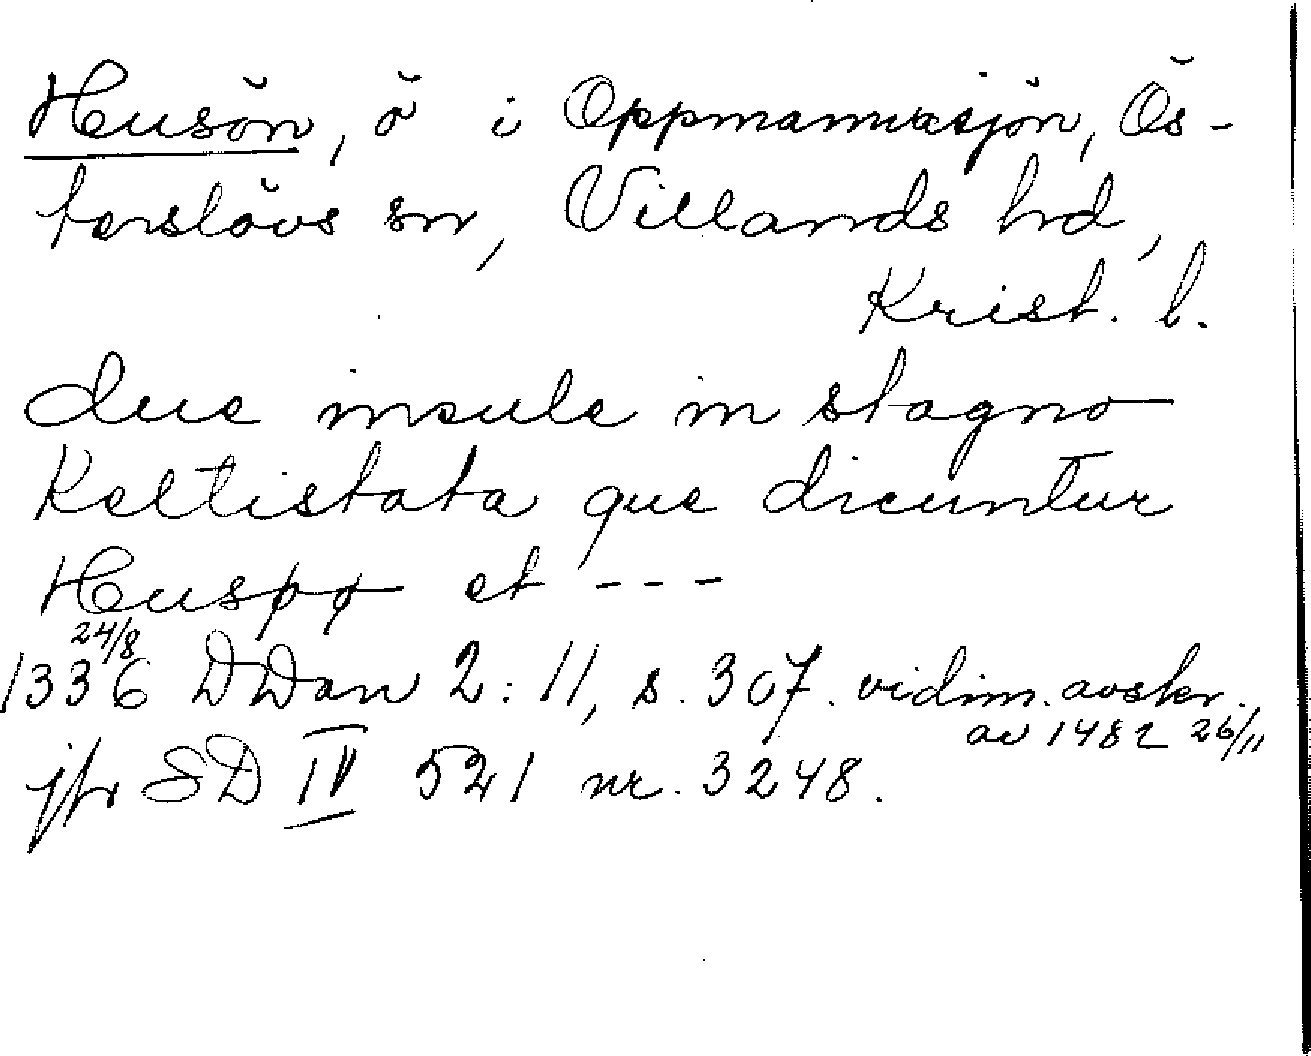 Husön, ö i Oppmannasjön, Ös-
terslövs sn, Villands hd,
Krist. l.
due insule in stagno
Keltistata que dicuntur
Huspø et ---
24/8
1336 DDan 2: 11, s. 307. vidim. avskr.
av 1482 26/11
jfr SD IV 521 nr. 3248.